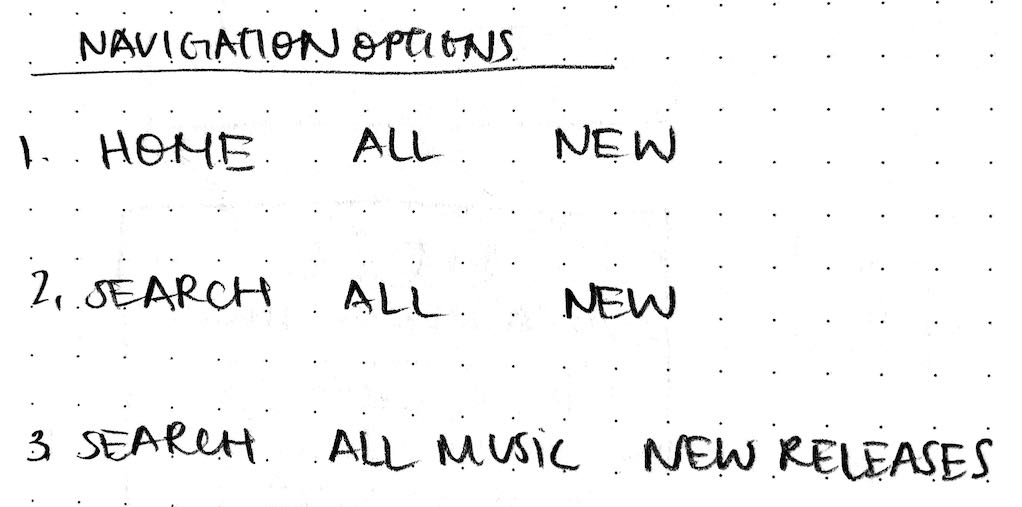 NAVIGATION OPTIONS
1. HOME ALL NEW
2. SEARCH ALL NEW
3 SEARCH ALL MUSIC NEW RELEASES